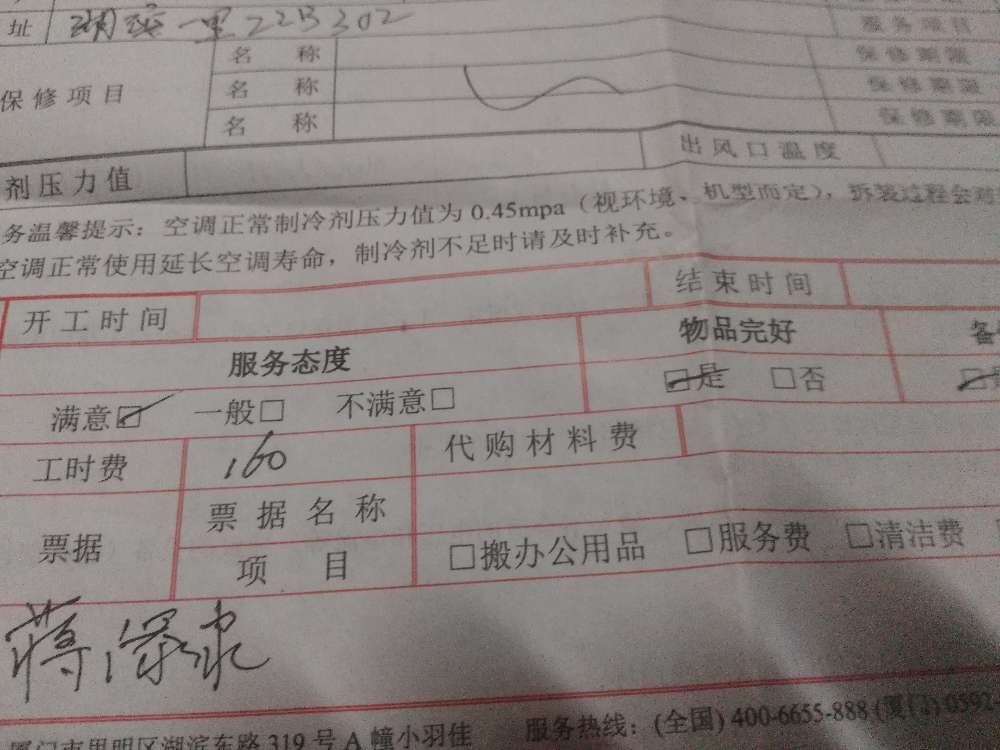 址 湖滨一里22B302 服务项目
名 称 保修期限
保修项目 名 称 保修期限
名 称 保修期限
剂压力值 出风口温度
务温馨提示：空调正常制冷剂压力值为 0.45mpa（视环境、机型而定），拆装过程会
空调正常使用延长空调寿命，制冷剂不足时请及时补充。
开工时间 结束时间
服务态度 物品完好 备
满意☑ 一般□ 不满意□ ☑是 □否
工时费 160 代购材料费
票据 票据名称
项 目 □搬办公用品 □服务费 □清洁费
蒋
厦门市思明区湖滨东路 319 号 A 幢小羽佳 服务热线：(全国) 400-6655-888 (厦门) 0592